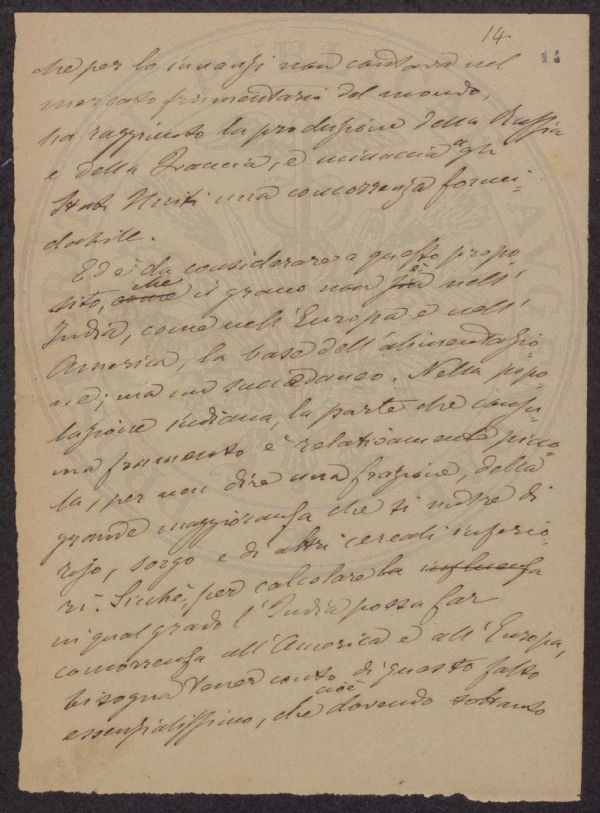 14
che per lo innanzi non contava nel
mercato frumentario del mondo,
ha raggiunto la produzione della Russia
e della Francia, e minaccia agli
Stati Uniti una concorrenza formi-
dabile.
Ed è da considerare a questo propo
sito, come che il grano non sia è nell'
India, come nell'Europa e nell'
America, la base dell'alimentazio
ne; ma un succedaneo. Nella popo-
lazione indiana, la parte che consu-
ma frumento è relativamente picco-
la, per non dire una frazione, della
grande maggioranza che si nutre di
riso, sorgo e di altri cereali inferio-
ri. Sicchè, per calcolare la influenza
in qual grado l'India possa far
concorrenza all'America e all'Europa,
bisogna tener conto di questo fatto
essenzialissimo, che cioè dovendo soltanto